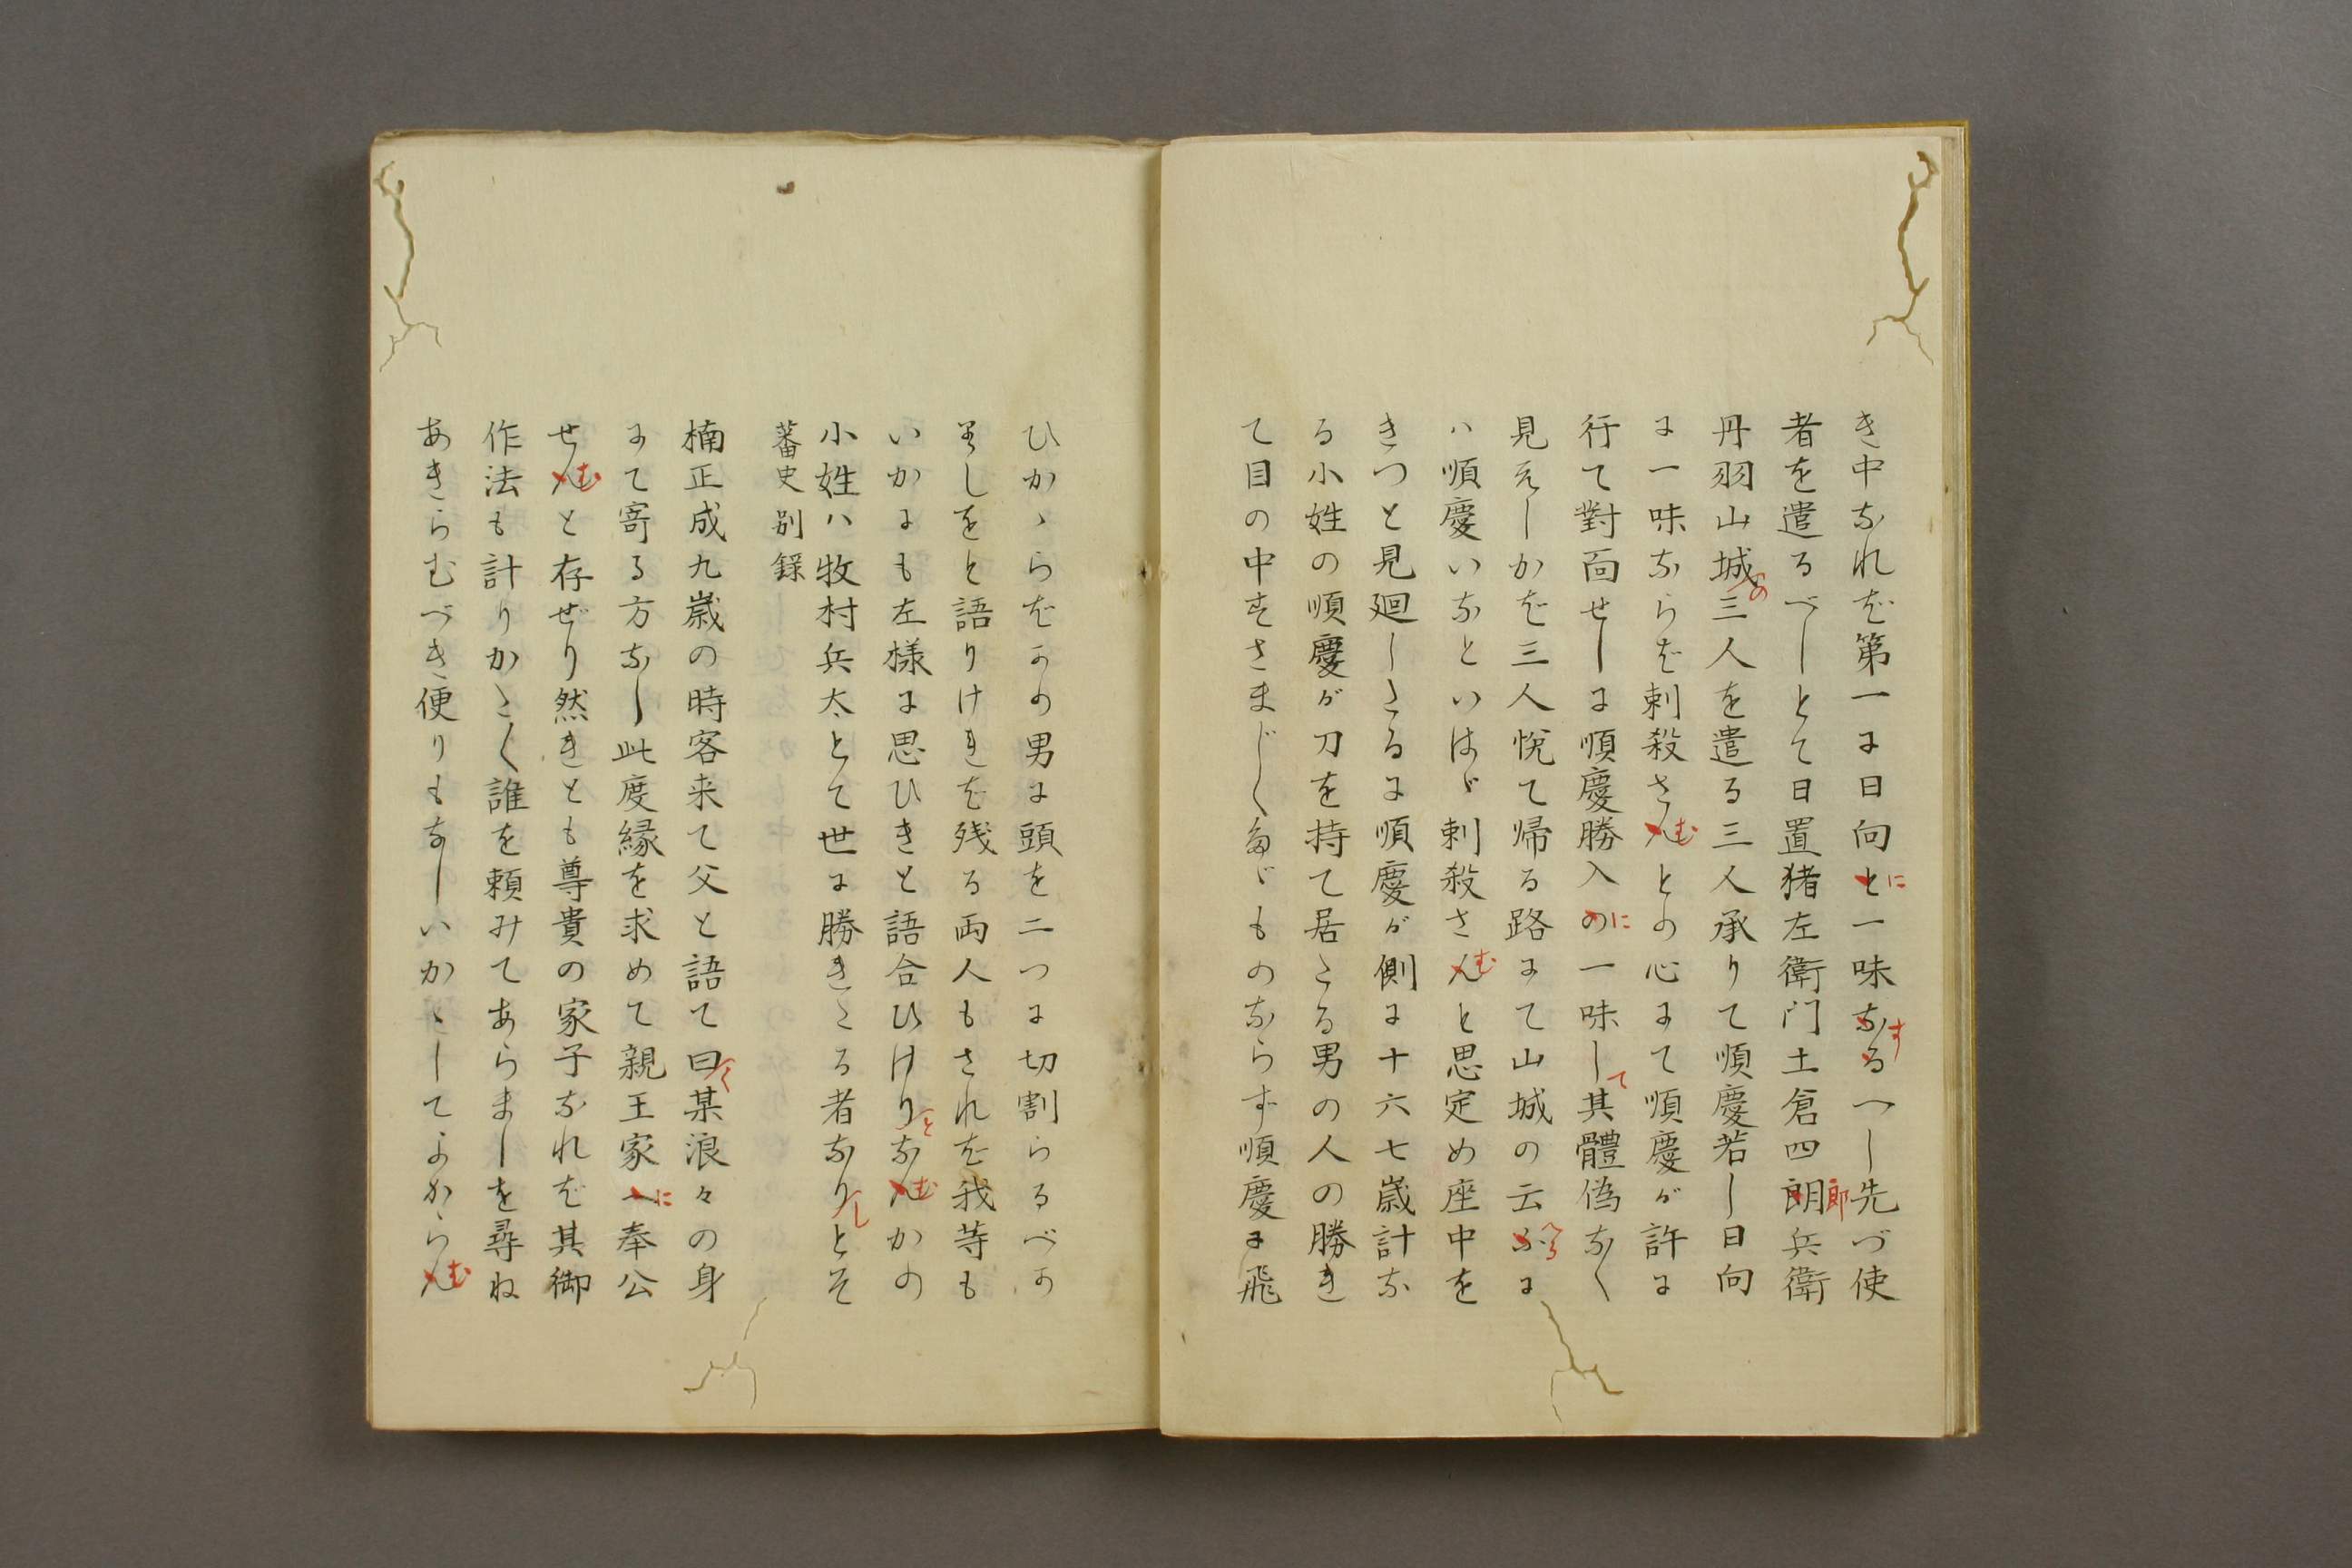 き中なれば第一に日向と一味なるへし先づ使
者を遣るべしとて日置猪左衛門土倉四朗兵衛
丹羽山城三人を遣る三人承りて順慶若し日向
に一味ならば刺殺さんとの心にて順慶が許に
行て對面せしに順慶勝入の一味し其體偽なく
見えしかば三人悦て帰る路にて山城の云ふに
ハ順慶いなといはゞ刺殺さんと思定め座中を
きつと見廻したるに順慶が側に十六七歳計な
る小姓の順慶が刀を持て居たる男の人の勝き
て目の中すさまじくたゞものならず順慶に飛
ひかゝらばかの男に頭を二つに切割らるべか
りしをと語りけれは残る両人もされば我等も
いかにも左様に思ひきと語合ひけりなんかの
小姓ハ牧村兵太とて世に勝れたる者なりとそ
蕃史別録
楠正成九歳の時客来て父と語て曰某浪々の身
にて寄る方なし此度縁を求めて親王家へ奉公
せんと存ぜり然れとも尊貴の家子なれば其御
作法も計りかたく誰を頼みてあらましを尋ね
あきらむべき便りもなしいかゝしてよからん
に
す
郎
の
む
に
て
へら
む
く
に
む
と
む
し
む